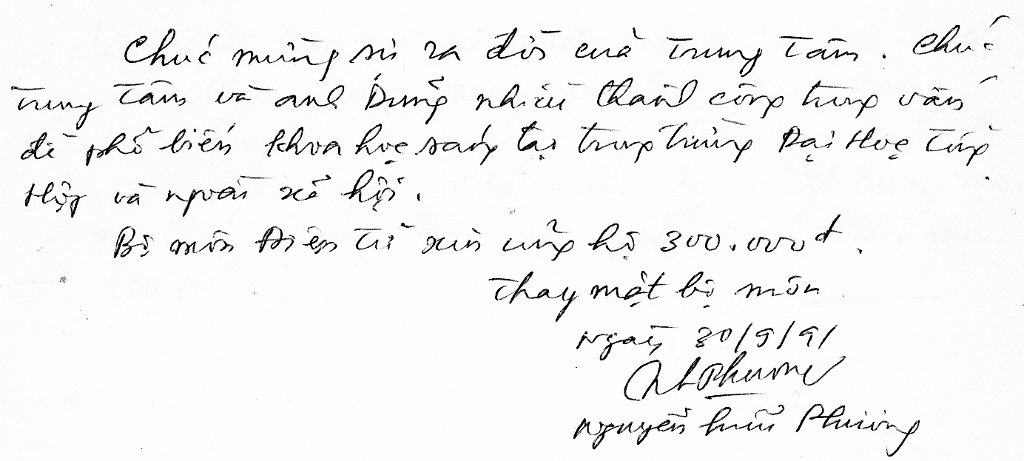 Chúc mừng sự ra đời của Trung Tâm. Chúc
trung Tâm và anh Dũng nhiều thành công trong vấn
đề phổ biến khoa học sang tại trong trường Đại Học Tổng
Hợp và ngoài xã hội.
Bộ môn Điện Tử xin ủng hộ 300.000đ.
Thay mặt bộ môn
Ngày 30/9/91
NhPhuong
Nguyễn hữu Phương